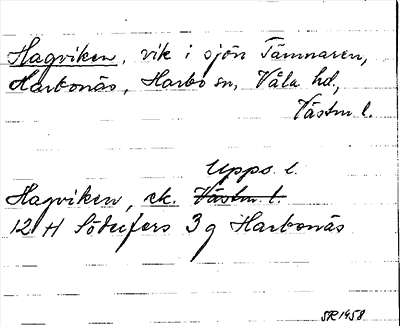 Hagviken, vik i sjön Tämnaren,
Harbonäs, Harbo sn, Våla hd,
Västm l.
Upps. l.
Hagviken, ek. Västm. l.
12 H Söderfors 3 g Harbonäs
SR 1458